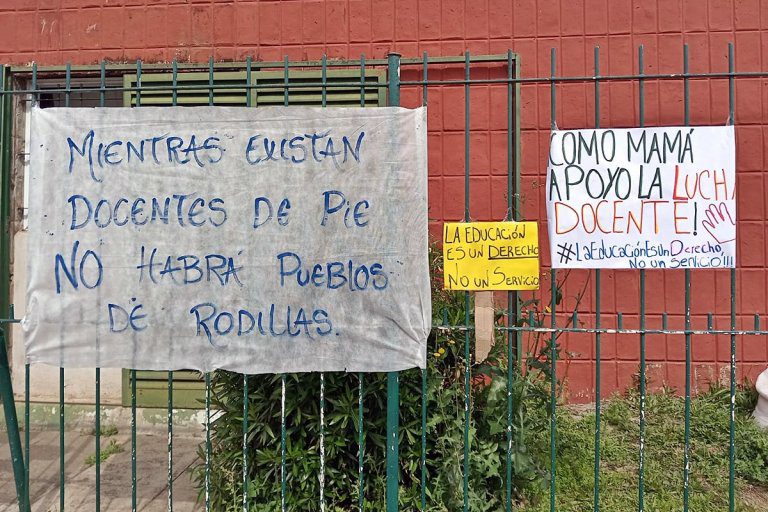 MIENTRAS EXISTAN
DOCENTES DE PIE
NO HABRÁ PUEBLOS
DE RODILLAS.
LA EDUCACIÓN
ES UN DERECHO
NO UN SERVICIO
COMO MAMÁ
APOYO LA LUCHA
DOCENTE!
#LaEducaciónEsUnDerecho,
No un servicio!!!